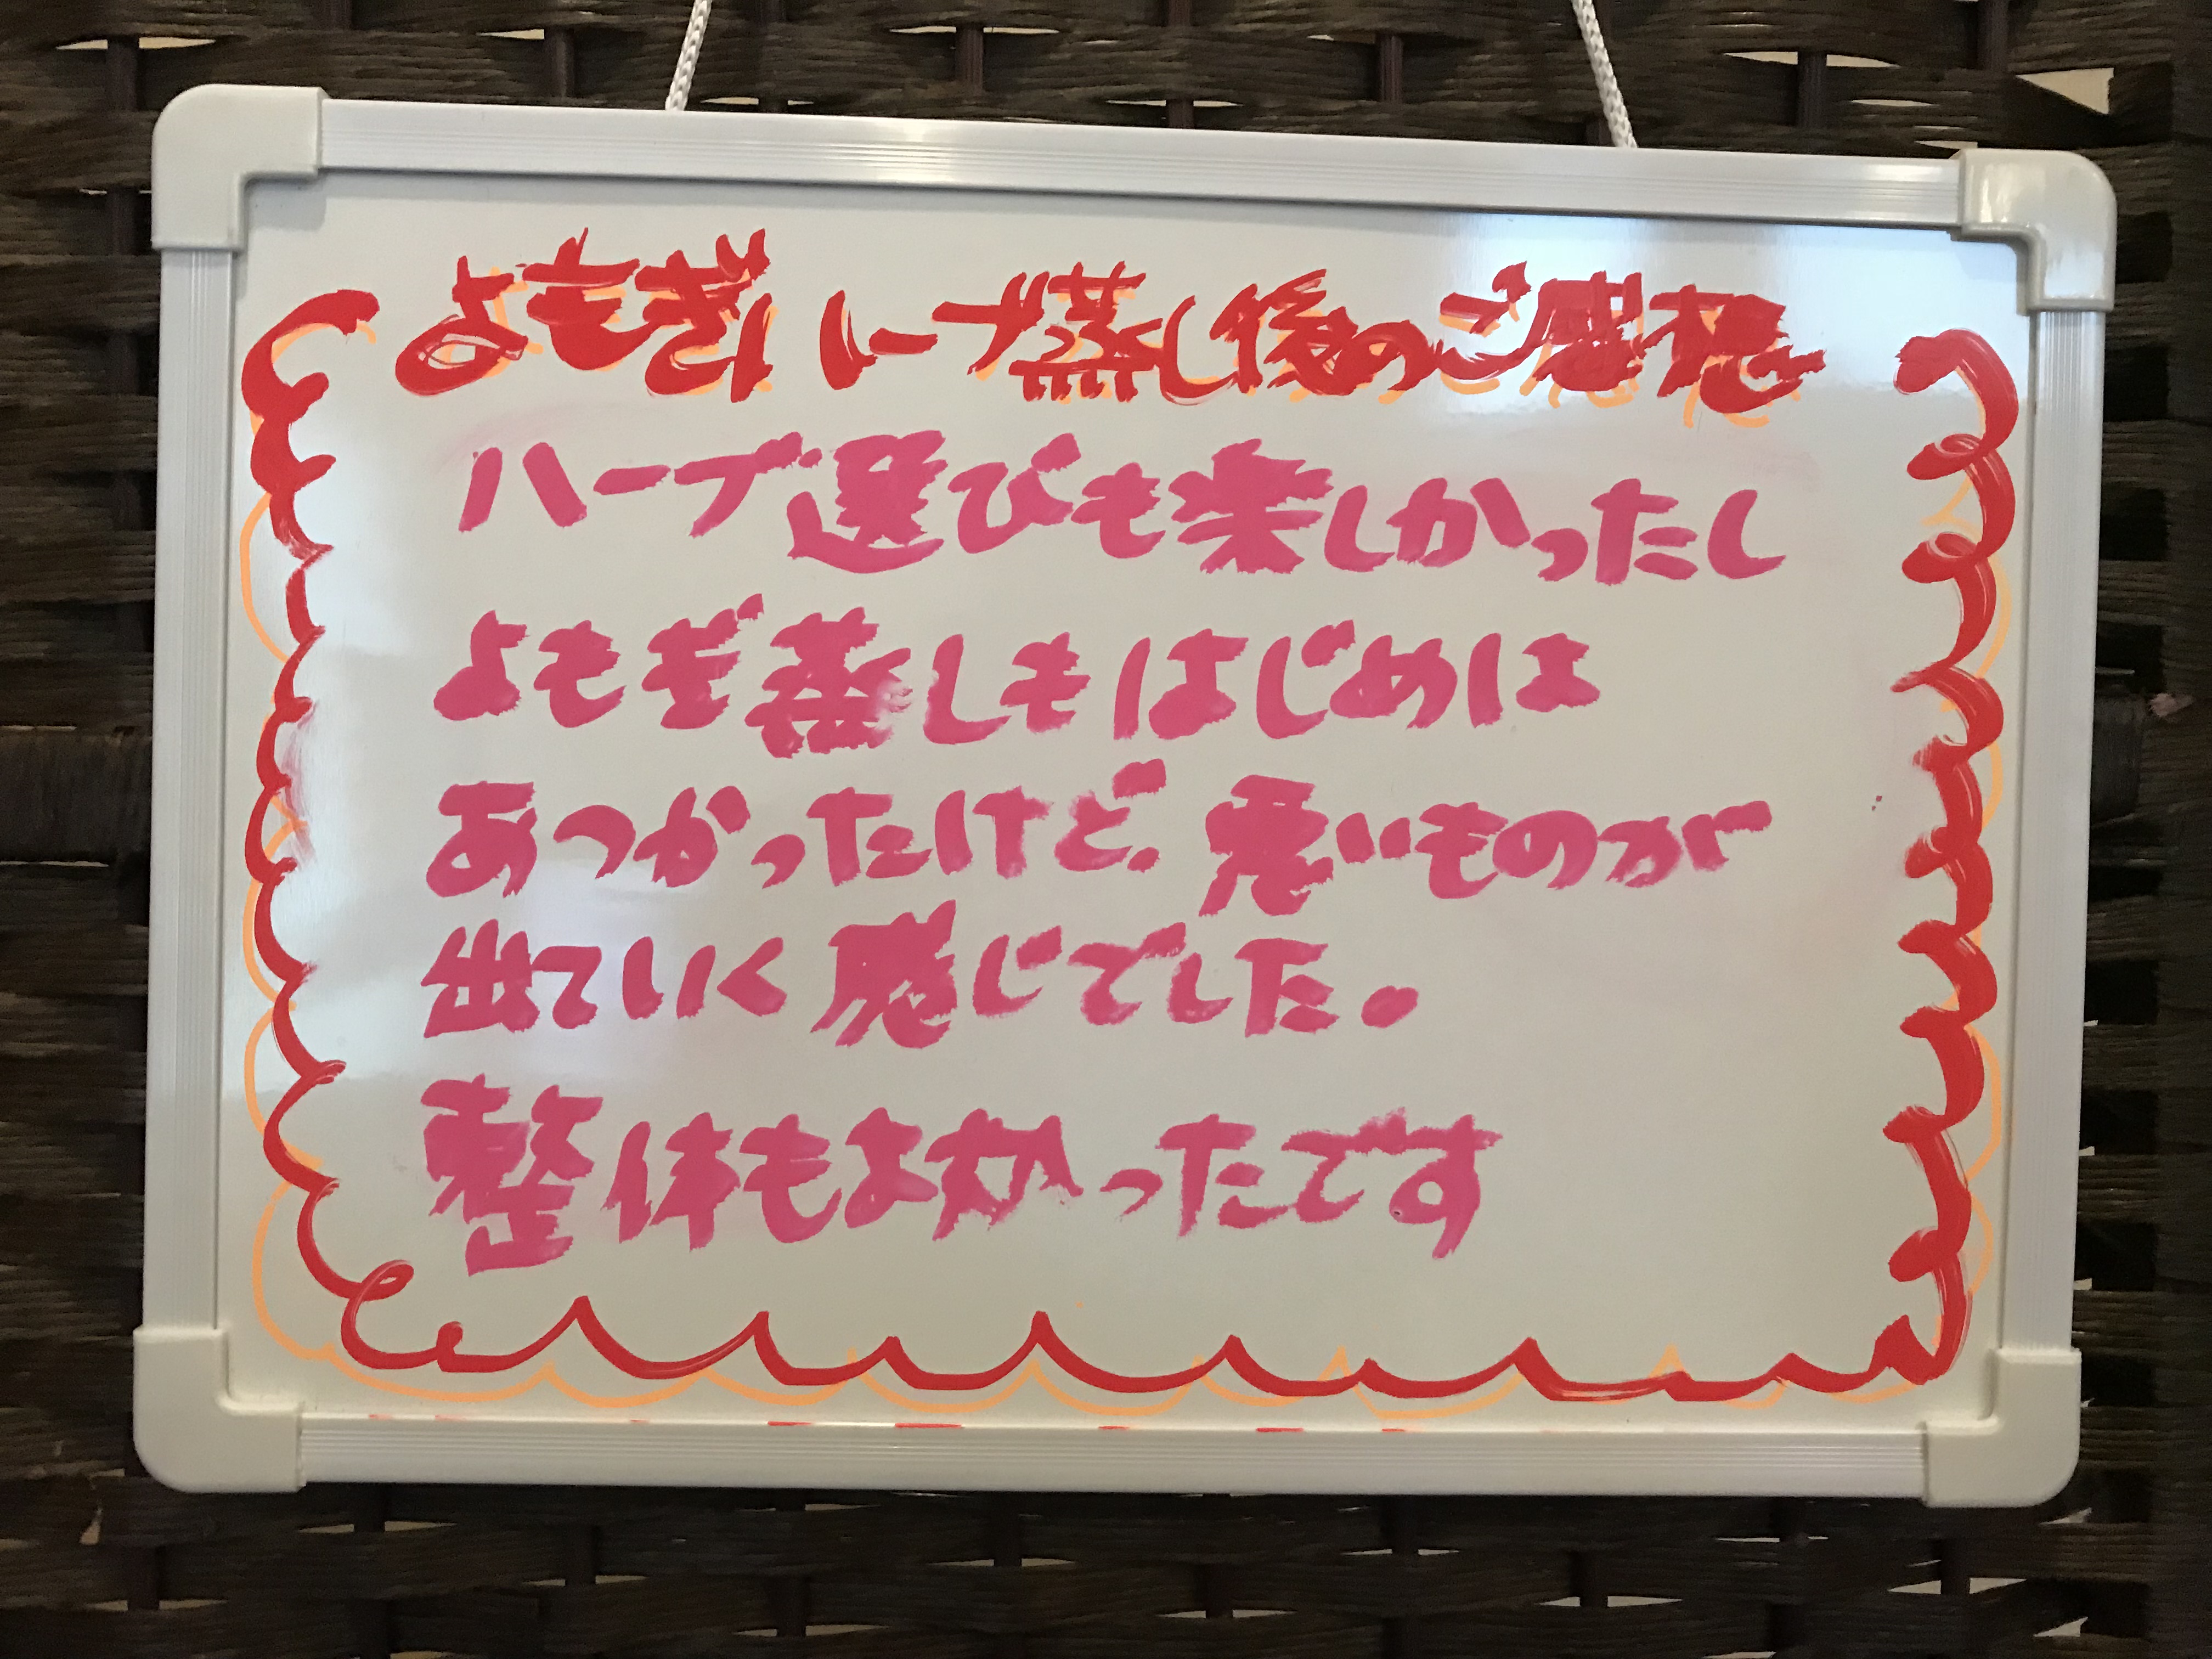 よもぎハーブ蒸し後のご感想
ハーブ選びも楽しかったし
よもぎ蒸しもはじめは
あつかったけど、悪いものが
出ていく感じでした。
整体もよかったです